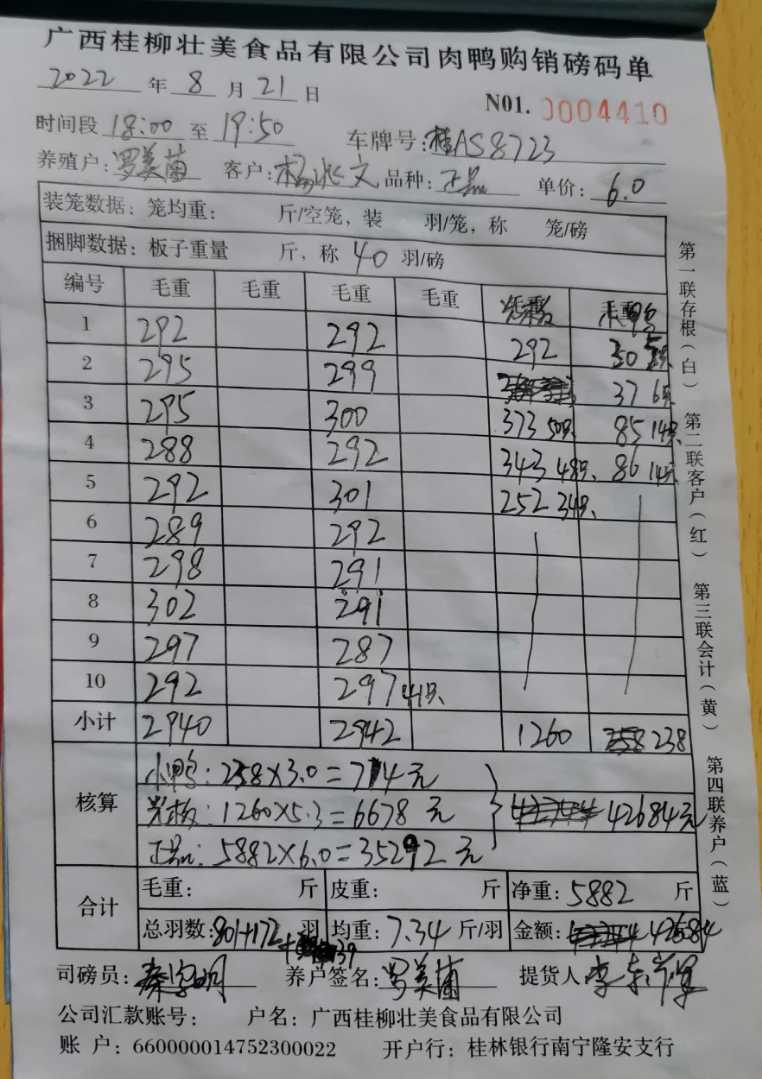 广西桂柳壮美食品有限公司肉鸭购销磅码单
2022 年 8 月 21 日
N01. 0004410
时间段 18:00 至 19:50 车牌号:桂AS8723
养殖户:罗美菌 客户:杨兆文 品种:正品 单价:6.0
装笼数据:笼均重: 斤/空笼,装 羽/笼,称 笼/磅
捆脚数据:板子重量 斤,称 40 羽/磅
编号 毛重 毛重 毛重 毛重
1 292 292 292 30 5只
2 295 299 37 6只
3 295 300 373 50只 85 14只
4 288 292 343 48只 86 14只
5 292 301 252 34只
6 289 292
7 298 291
8 302 291
9 297 287
10 292 297 41只
小计 2940 2942 1260 238
核算
小鸭:238×3.0=714元
:1260×5.3=6678元
42684元
正品:5882×6.0=35292元
合计
毛重: 斤 皮重: 斤 净重:5882 斤
总羽数:801+172 +39 羽 均重:7.34 斤/羽 金额: 42684
司磅员: 养户签名:罗美菌 提货人
公司汇款账号: 户名:广西桂柳壮美食品有限公司
账 户:660000014752300022 开户行:桂林银行南宁隆安支行
第一联存根(白)
第二联客户(红)
第三联会计(黄)
第四联养户(蓝)